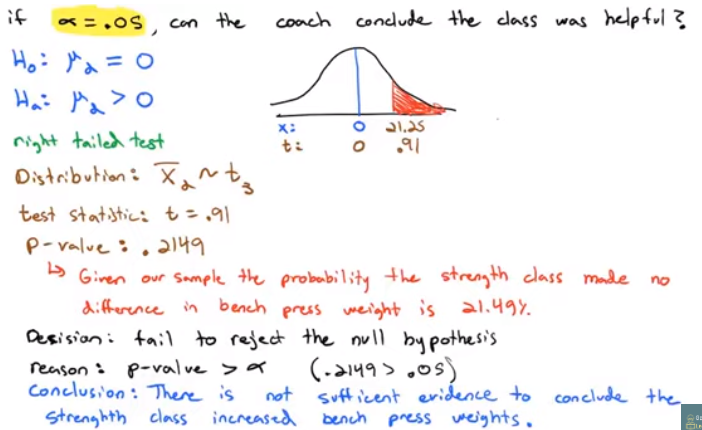 if α = .05, can the coach conclude the class was helpful?
H₀: μd = 0
Ha: μd > 0
x: 0 21.25
t: 0 .91
right tailed test
Distribution: X̄d ~ t₃
test statistic: t = .91
P-value: .2149
↳ Given our sample the probability the strength class made no
difference in bench press weight is 21.49%.
Desision: fail to reject the null hypothesis
reason: p-value > α (.2149 > .05)
Conclusion: There is not sufficent evidence to conclude the
strenghth class increased bench press weights.